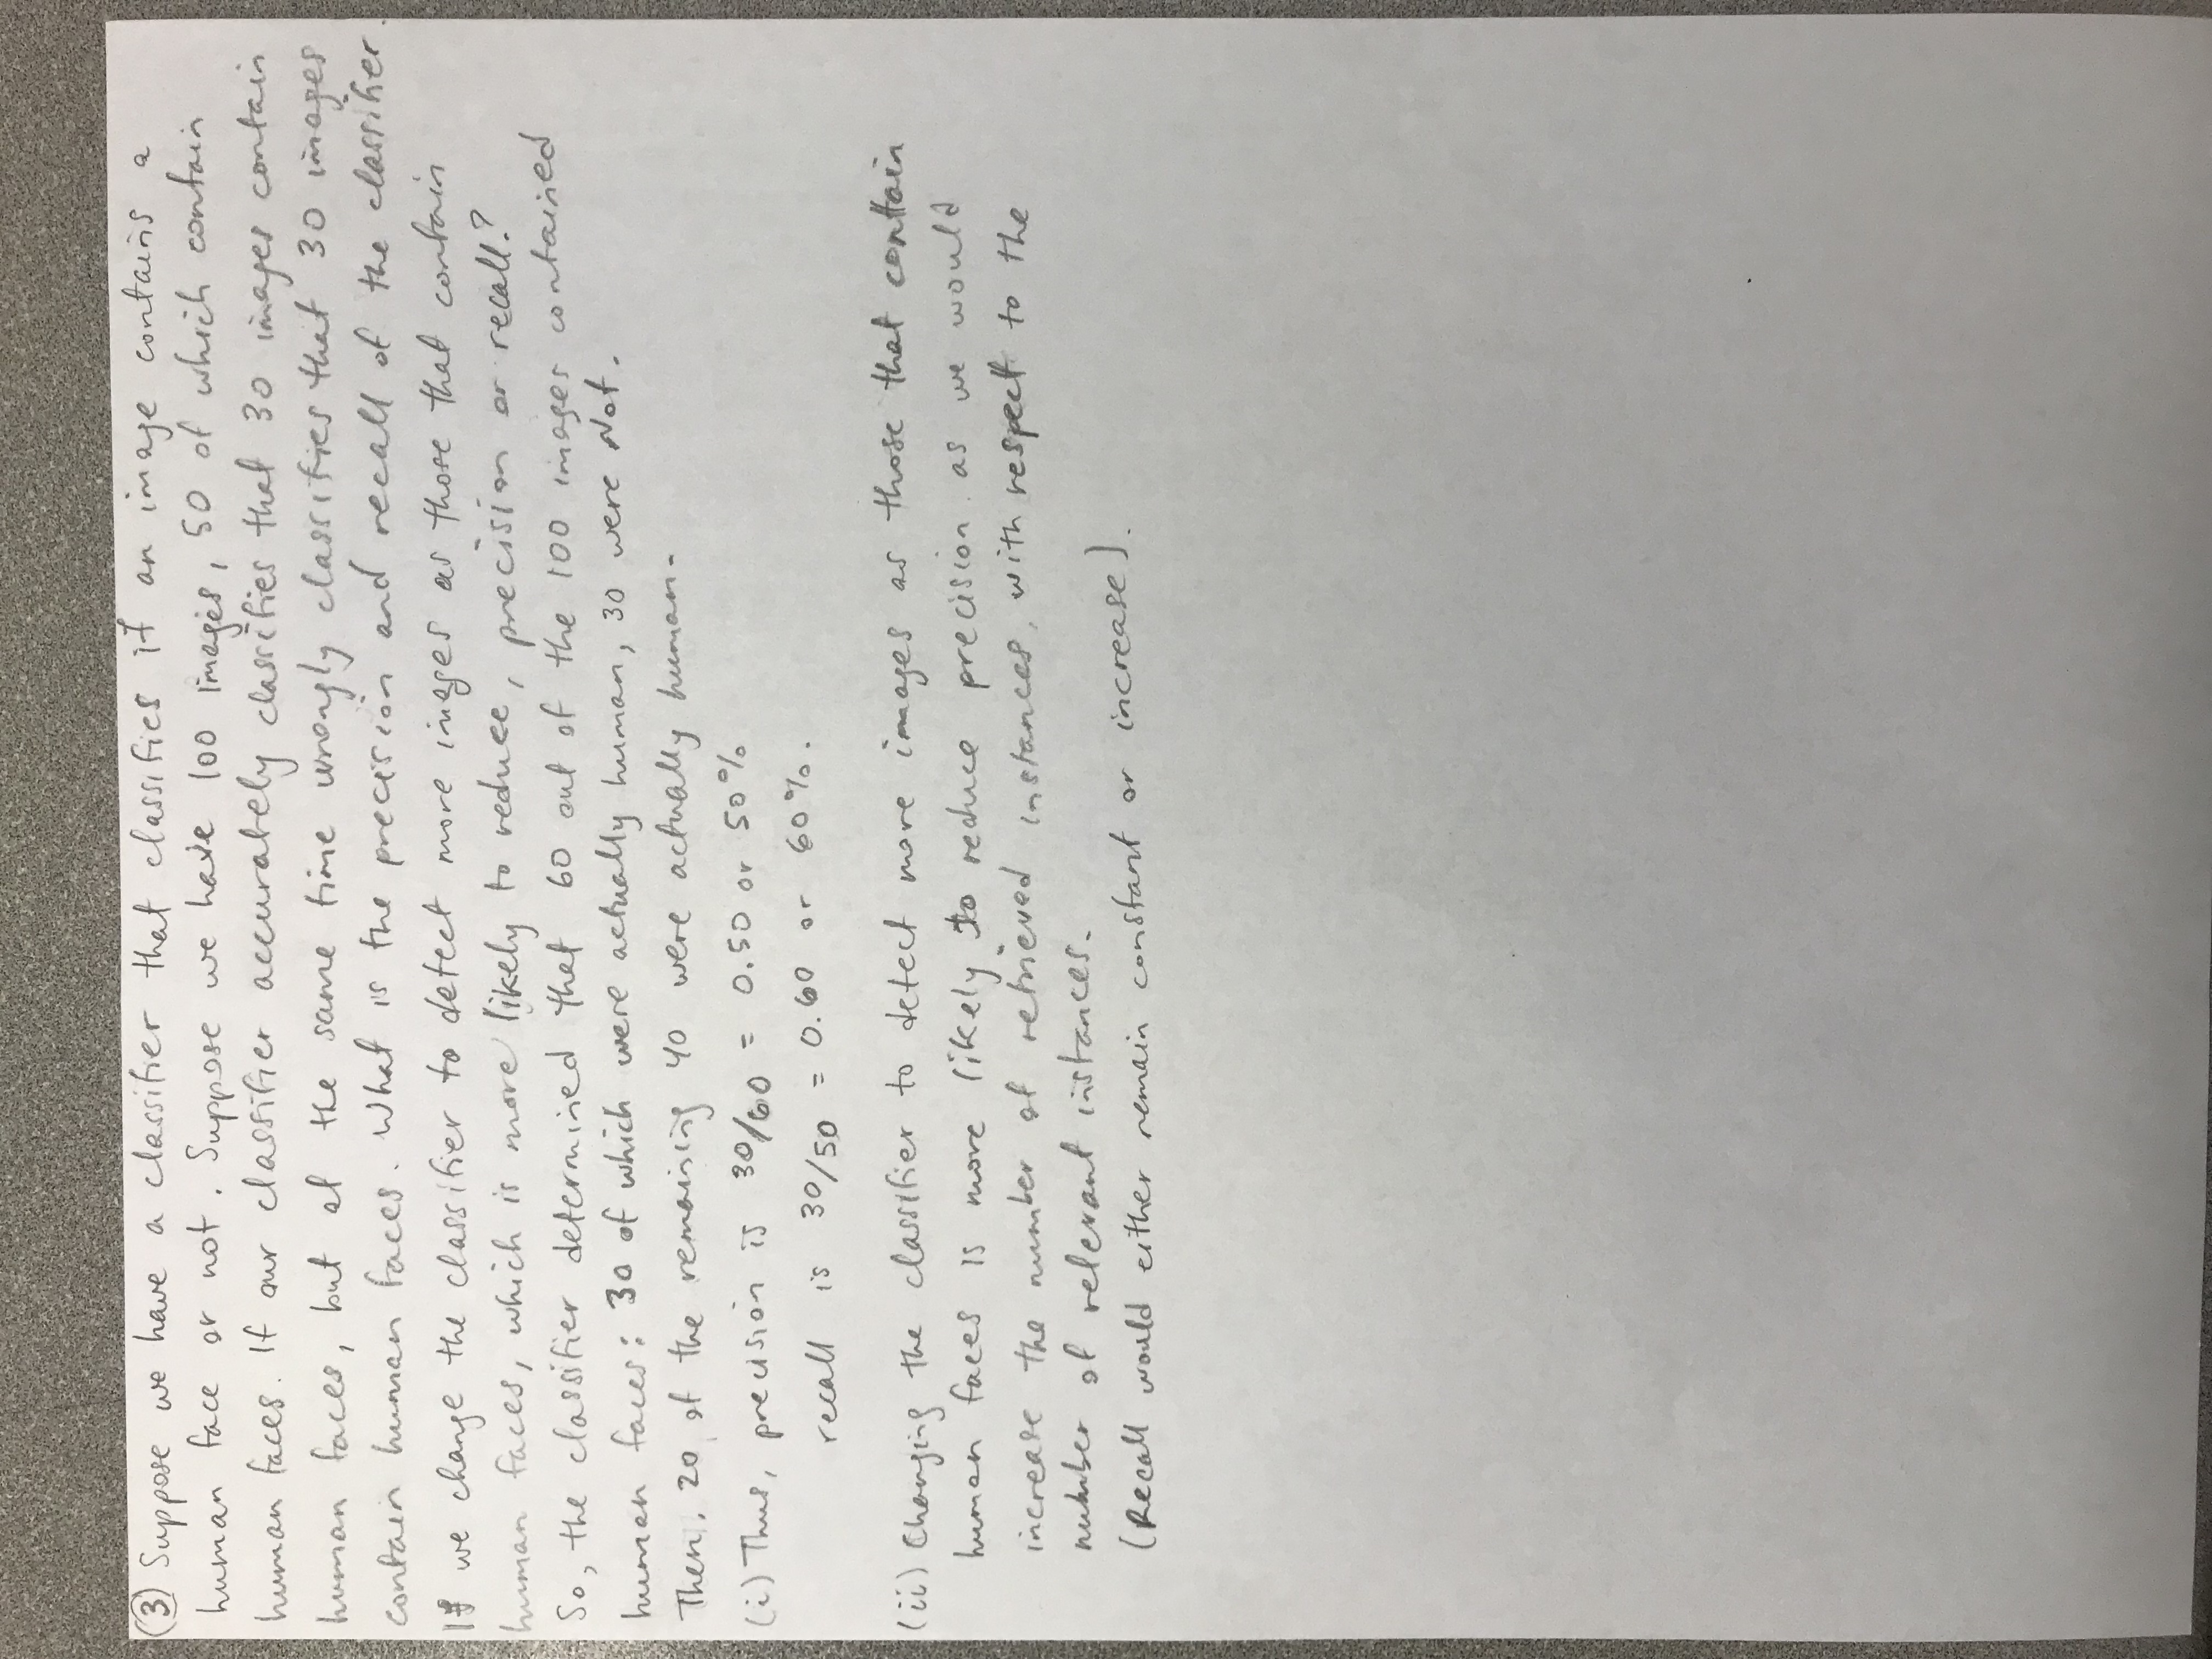 (3) Suppose we have a classifier that classifies if an image contains a
human face or not. Suppose we have 100 images, 50 of which contain
human faces. If our classifier accurately classifies that 30 images contain
human faces, but at the same time wrongly classifies that 30 images
contain human faces. What is the precision and recall of the classifier.
If we change the classifier to detect more images as those that contain
human faces, which is more likely to reduce, precision or recall?
So, the classifier determined that 60 out of the 100 images contained
human faces: 30 of which were actually human, 30 were Not.
Then, 20 of the remaining 40 were actually human.
(i) Thus, precision is 30/60 = 0.50 or 50%
recall is 30/50 = 0.60 or 60%.
(ii) Changing the classifier to detect more images as those that contain
human faces is more likely to reduce precision as we would
increase the number of retrieved instances, with respect to the
number of relevant instances.
(Recall would either remain constant or increase).